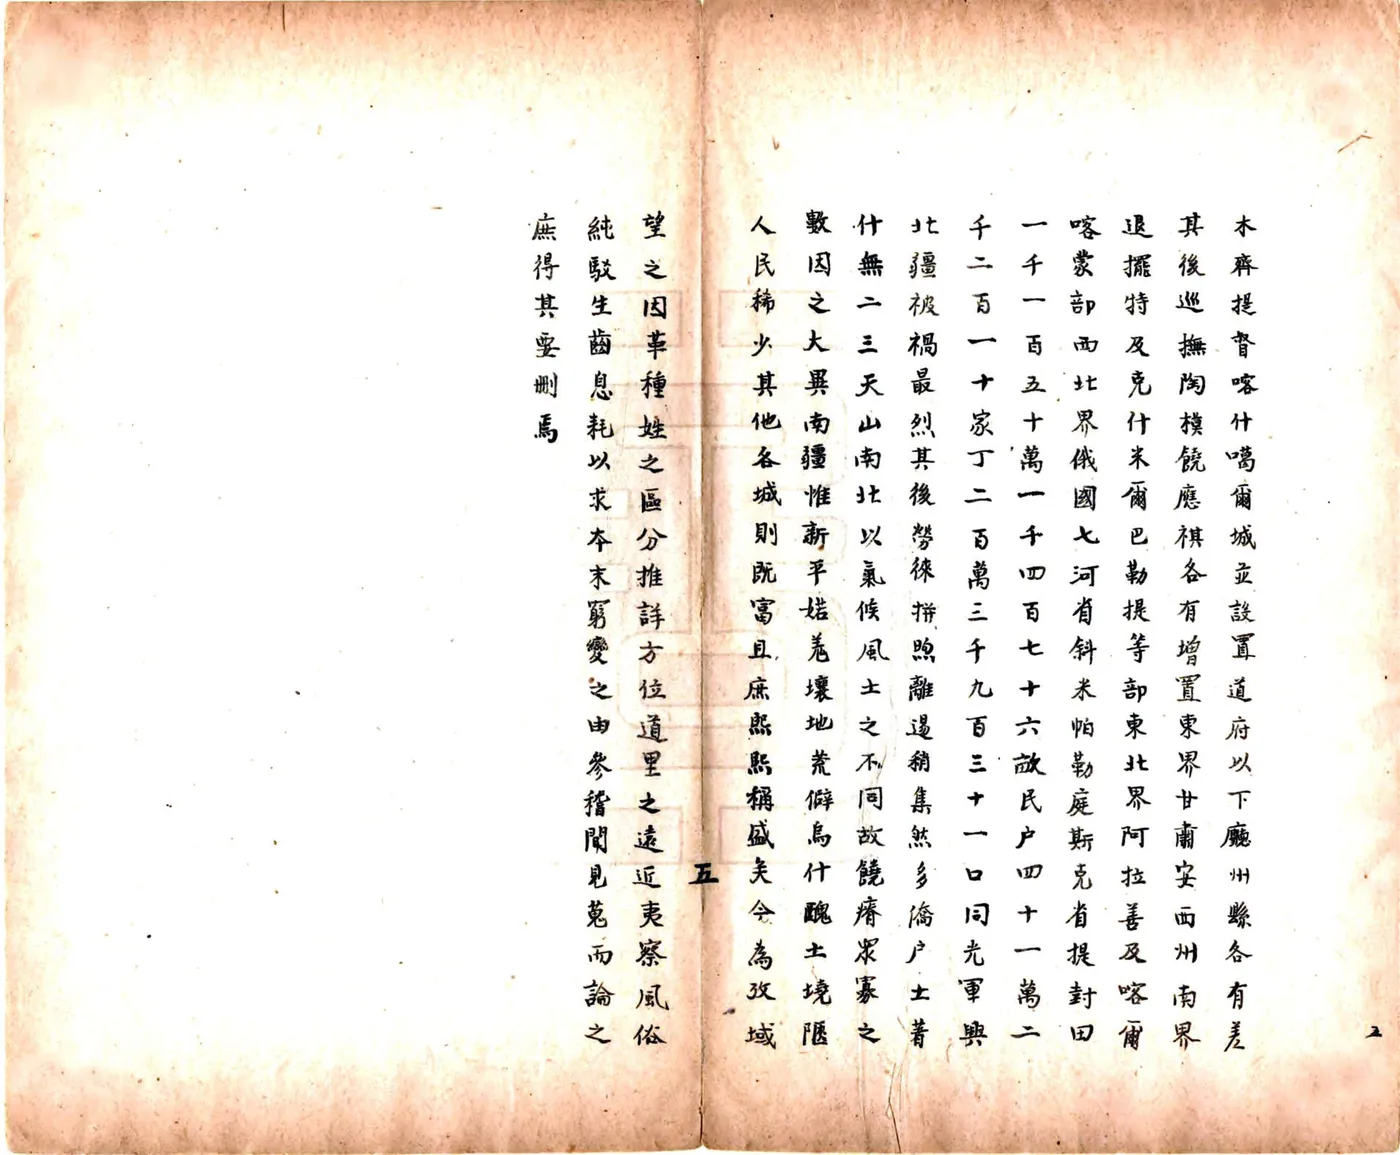 木齊提督喀什噶爾城並設置道府以下廳州縣各有差
其後巡撫陶模饒應祺各有增置東界甘肅安西州南界
退擺特及克什米爾巴勒提等部東北界阿拉善及喀爾
喀蒙部西北界俄國七河省斜米帕勒庭斯克省提封田
一千一百五十萬一千四百七十六畝民户四十一萬二
千二百一十家丁二百萬三千九百三十一口同光軍興
北疆被禍最烈其後勞徠拼煦離逿稍集然多僑户土著
什無二三天山南北以氣候風土之不同故饒瘠眾寡之
數因之大異南疆惟新平婼羌壤地荒僻烏什醜土境陿
人民稀少其他各城則既富且庶熙熙稱盛矣今為攷域
五
望之因革種姓之區分推詳方位道里之遠近夷察風俗
純駁生齒息耗以求本末窮變之由參稽聞見蒐而論之
庶得其要刪焉